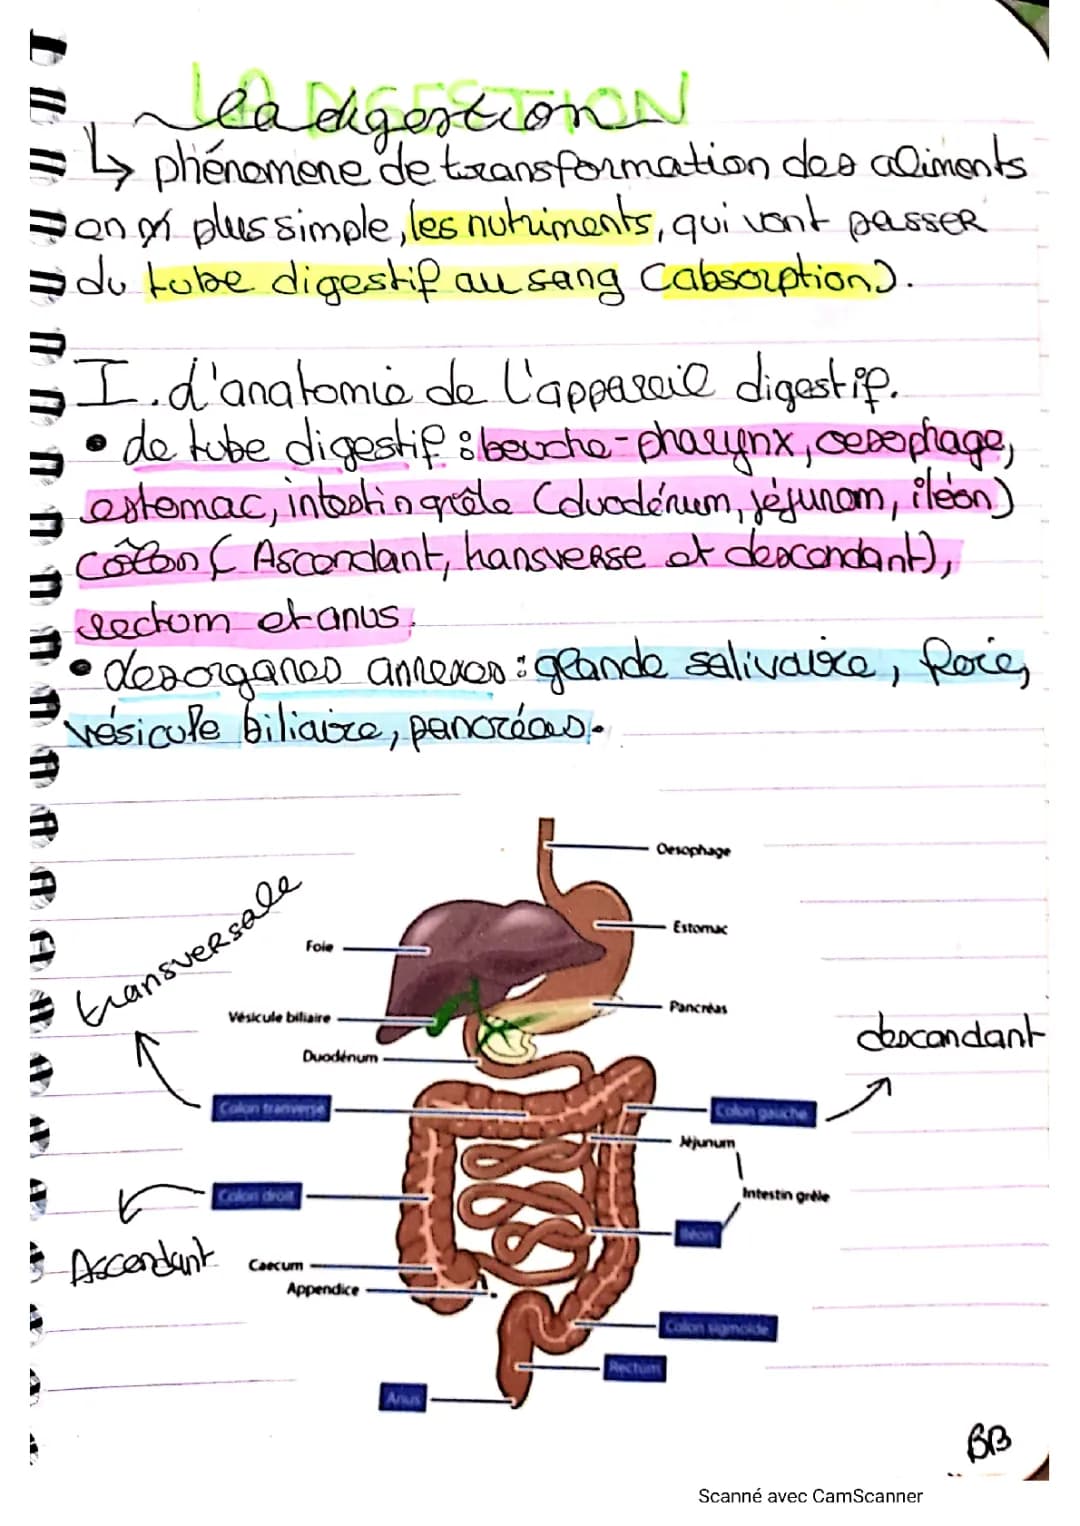 LA DIGESTION
La digestion
↳ phénomène de transformation des aliments
en m plus simple, les nutriments, qui vont passer
du tube digestif au sang (absorption).
I. L'anatomie de l'appareil digestif.
• Le tube digestif : bouche-pharynx, oesophage,
estomac, intestin grêle (duodénum, jéjunom, iléon)
côlon (Ascendant, transverse et descendant),
rectum et anus.
• Des organes annexes : glande salivaire, foie,
vésicule biliaire, pancréas.
Oesophage
transversale
Estomac
Foie
Pancréas
Vésicule biliaire
descendant
Duodénum
Colon tranverse
Colon gauche
Jéjunum
Colon droit
Intestin grêle
Iléon
Ascendant
Caecum
Appendice
Colon sigmoïde
Rectum
Anus
BB
Scanné avec CamScanner